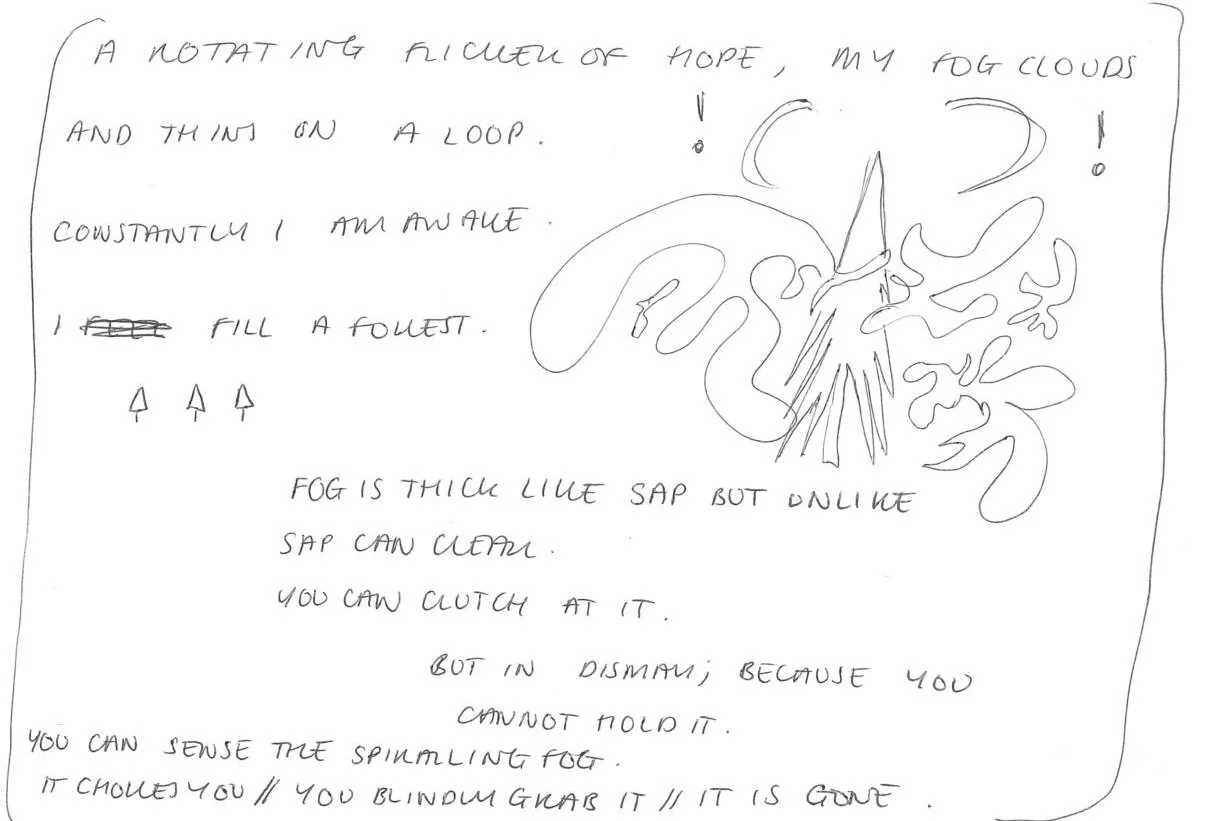 A ROTATING FLICKER OF HOPE, MY FOG CLOUDS
AND THINS ON A LOOP.
CONSTANTLY I AM AWAKE.
I FILL A FOREST.
FOG IS THICK LIKE SAP BUT UNLIKE
SAP CAN CLEAR.
YOU CAN CLUTCH AT IT.
BUT IN DISMAY; BECAUSE YOU
CANNOT HOLD IT.
YOU CAN SENSE THE SPIRALLING FOG.
IT CHOKES YOU // YOU BLINDLY GRAB IT // IT IS GONE.